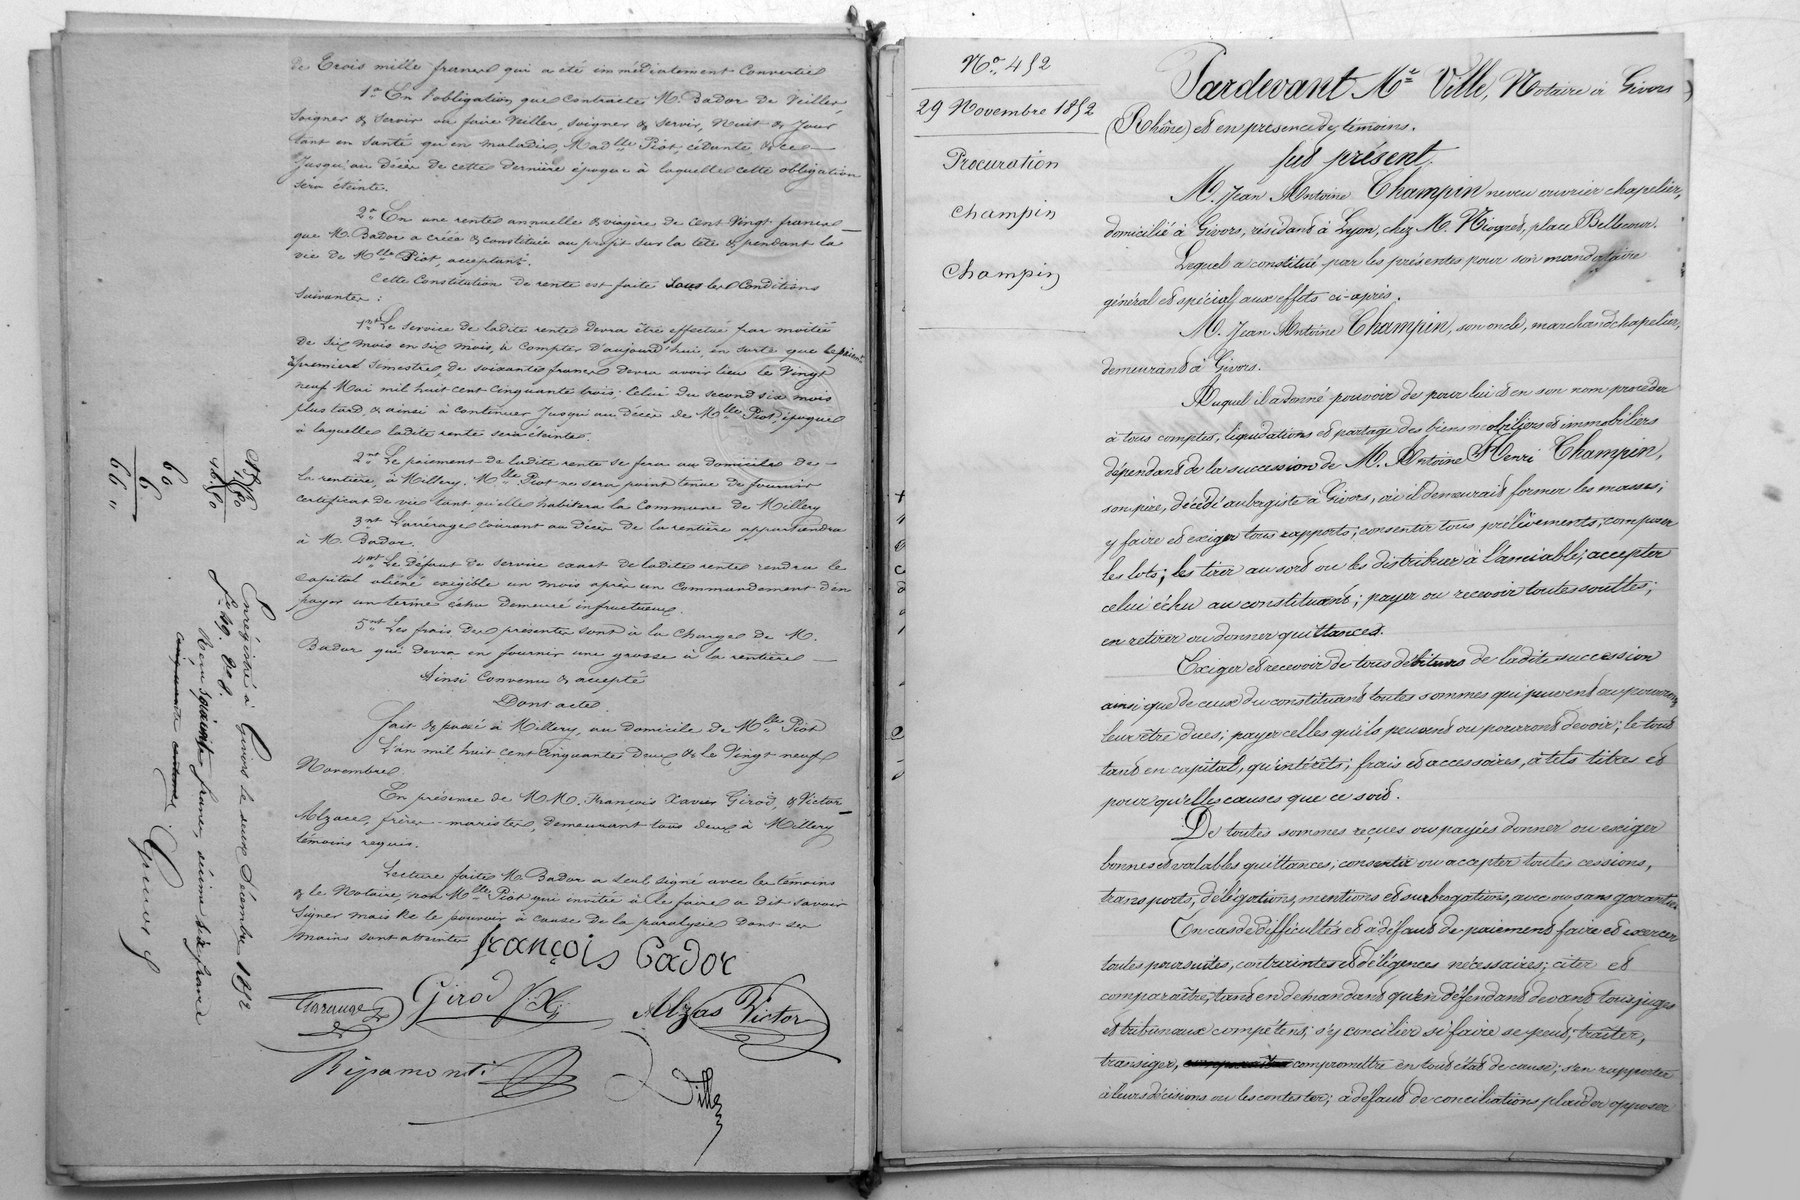 de Trois mille francs qui a été immédiatement Convertie
1° En l'obligation que contracte M. Bador de Veiller,
soigner & servir ou faire veiller, soigner & servir, Nuit & Jour
tant en santé qu'en maladie, Mad.lle Piot, cédante, & ce
Jusqu'au Décès de cette dernière époque à laquelle cette obligation
sera éteinte.
2° En une rente annuelle & viagère de Cent Vingt francs
que M. Bador a créée & constituée au profit sur la tête & pendant la
vie de Mlle Piot, acceptant.
Cette Constitution de rente est faite sous les Conditions
suivantes :
1ent Le service de ladite rente devra être effectué par moitié
de six mois en six mois, à compter d'aujourd'hui, en sorte que le paiemt
du premier semestre, de soixante francs devra avoir lieu le Vingt
neuf Mai mil huit cent cinquante trois. Celui du second six mois
plus tard & ainsi à continuer jusqu'au décès de Mlle Piot, époque
à laquelle ladite rente sera éteinte.
2ent Le paiement de ladite rente se fera au domicile de
la rentière, à Millery. Mlle Piot ne sera point tenue de fournir
certificat de vie tant qu'elle habitera la Commune de Millery
3ent L'arrérage Courant au décès de la rentière appartiendra
à M. Bador.
4ent Le défaut de service exact de ladite rente rendra le
capital aliéné exigible un mois après un Commandement d'en
payer un terme échu Demeuré infructueux.
5ent Les frais des présentes sont à la Charge de M.
Bador qui devra en fournir une grosse à la rentière
Ainsi Convenu & accepté
Dont acte.
fait & passé à Millery, au Domicile de Mlle Piot
L'an mil huit cent Cinquante Deux & le Vingt neuf
Novembre.
En présence de MM. François Xavier Girod, & Victor
Alzace, frères maristes, demeurant tous deux à Millery
témoins requis.
Lecture faite M. Bador a seul signé avec les témoins
& le Notaire, non Mlle Piot qui invitée à le faire a dit savoir
signer mais ne le pouvoir à cause de la paralysie Dont ses
mains sont atteintes
françois Bador
Girod f. X.
Alzas Victor
Ripamonti
Ville
Enregistré à Givors le deux Décembre 1852
f° 49. V° C 8.
Reçu soixante francs, décime six francs
60
6
66 "
N° 452
29 Novembre 1852
Procuration
Champin
Champin
Pardevant Me Ville, Notaire à Givors
(Rhône) et en présence des témoins.
fut présent,
M. Jean Antoine Champin neveu ouvrier chapelier,
domicilié à Givors, résidant à Lyon, chez M. Niogret, place Bellecour.
Lequel a constitué par les présentes pour son mandataire
général et spécial, aux effets ci-après.
M. Jean Antoine Champin, son oncle, marchand chapelier,
demeurant à Givors.
Auquel il a donné pouvoir de pour lui et en son nom procéder
à tous comptes, liquidations et partage des biens mobiliers et immobiliers
dépendant de la succession de M. Antoine Henri Champin,
son père, décédé aubergiste à Givors, où il demeurait former les masses;
y faire et exiger tous rapports; consentir tous prélèvements, composer
les lots; les tirer au sort ou les distribuer à l'amiable; accepter
celui échu au constituant; payer ou recevoir toutes soultes;
en retirer ou donner quittances.
Exiger et recevoir de tous débiteurs de ladite succession
ainsi que de ceux du constituant toutes sommes qui peuvent ou pourront
leur être dues; payer celles qu'ils peuvent ou pourront devoir; le tout
tant en capital, qu'intérêts; frais et accessoires, à tels titres et
pour quelles causes que ce soit.
De toutes sommes reçues ou payées donner ou exiger
bonnes et valables quittances; consentir ou accepter toutes cessions,
transports, délégations, mentions et subrogations, avec ou sans garantie
En cas de difficultés et à défaut de paiement faire et exercer
toutes poursuites, contraintes et diligences nécessaires; citer et
comparaître, tant en demandant qu'en défendant devant tous juges
et tribunaux compétens; s'y concilier si faire se peut; traiter,
transiger, compromettre en tout état de cause; s'en rapporter
à leurs décisions ou les contester; à défaut de conciliations plaider opposer